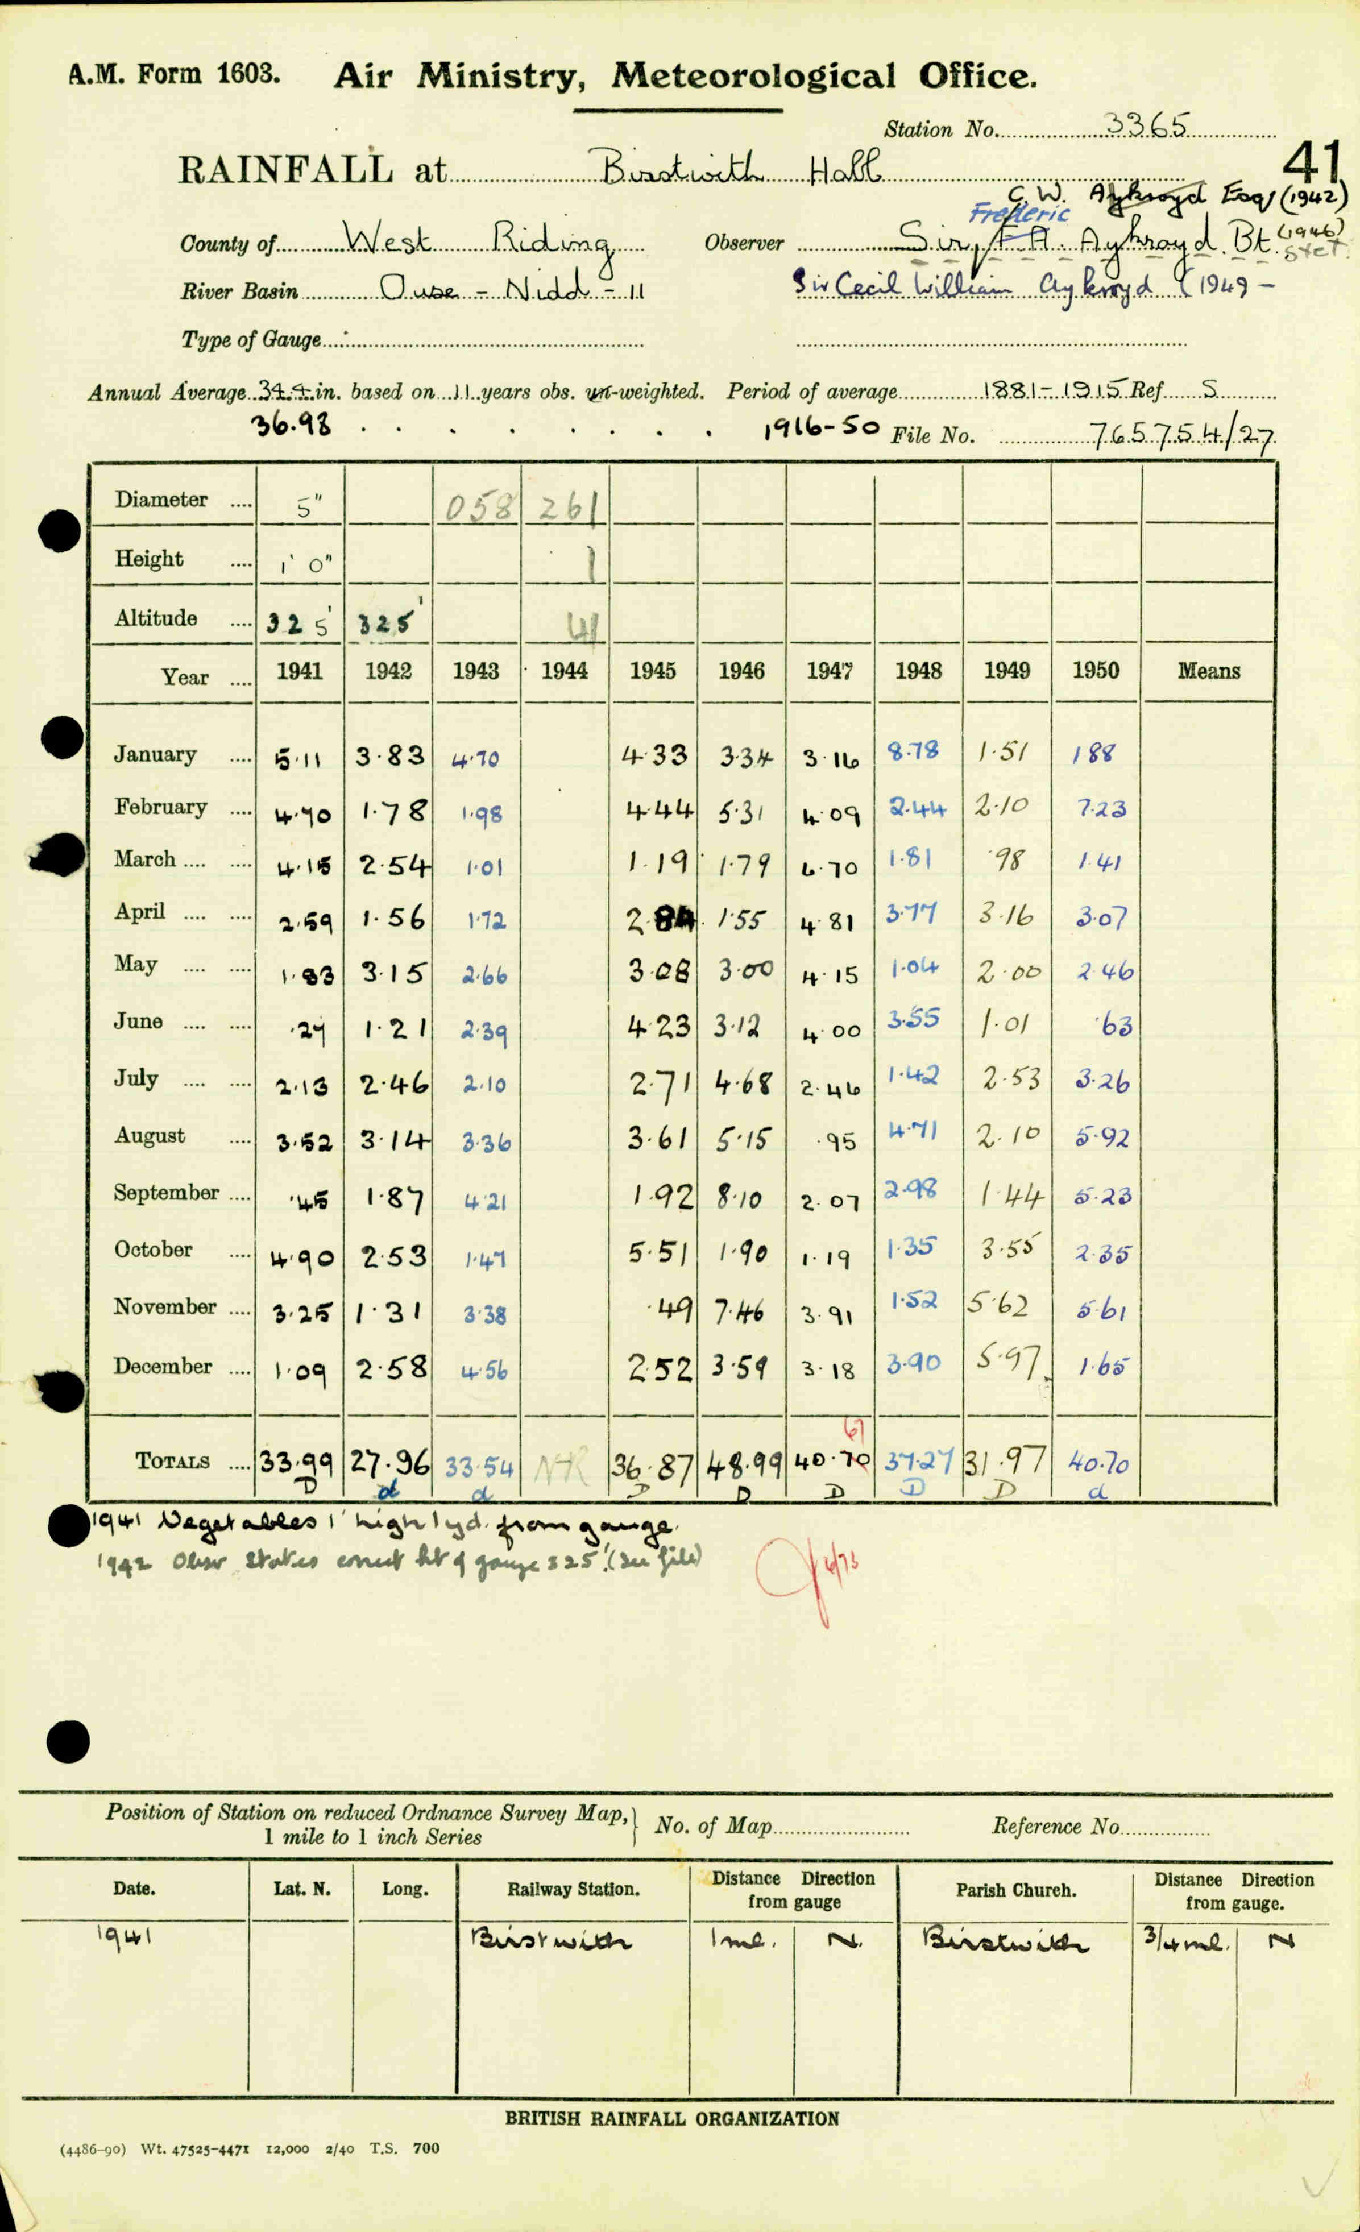 A.M. Form 1603. Air Ministry, Meteorological Office.
Station No. 3365
41
RAINFALL at Birstwith Hall
C.W. Aykroyd Esq (1942)
Frederic
County of West Riding Observer Sir, F.A. Aykroyd Bt. (1946) stet.
River Basin Ouse - Nidd - 11 Sir Cecil William Aykroyd (1949 -
Type of Gauge
Annual Average 34.4 in. based on 11 years obs. un-weighted. Period of average 1881-1915 Ref S
36.98 . . . . . . . . 1916-50 File No. 765754/27
Diameter .... 5" 058 261
Height .... 1' 0" 1
Altitude .... 325' 325' 41
Year .... 1941 1942 1943 1944 1945 1946 1947 1948 1949 1950 Means
January .... 5.11 3.83 4.70 4.33 3.34 3.16 8.78 1.51 1.88
February .... 4.70 1.78 1.98 4.44 5.31 4.09 2.44 2.10 7.23
March .... .... 4.15 2.54 1.01 1.19 1.79 6.70 1.81 .98 1.41
April .... .... 2.59 1.56 1.72 2.84 1.55 4.81 3.77 3.16 3.07
May .... .... 1.83 3.15 2.66 3.08 3.00 4.15 1.04 2.00 2.46
June .... .... .27 1.21 2.39 4.23 3.12 4.00 3.55 1.01 .63
July .... .... 2.13 2.46 2.10 2.71 4.68 2.46 1.42 2.53 3.26
August .... 3.52 3.14 3.36 3.61 5.15 .95 4.71 2.10 5.92
September .... .45 1.87 4.21 1.92 8.10 2.07 2.98 1.44 5.23
October .... 4.90 2.53 1.47 5.51 1.90 1.19 1.35 3.55 2.35
November .... 3.25 1.31 3.38 .49 7.46 3.91 1.52 5.62 5.61
December .... 1.09 2.58 4.56 2.52 3.59 3.18 3.90 5.97 1.65
67
TOTALS .... 33.99 27.96 33.54 NR 36.87 48.99 40.70 37.27 31.97 40.70
D d d D D D D D d
1941 Vegetables 1' high 1 yd. from gauge.
1942 Obsr. states correct ht of gauge 325'. (see file)
6/73
Position of Station on reduced Ordnance Survey Map, No. of Map Reference No.
1 mile to 1 inch Series
Date. Lat. N. Long. Railway Station. Distance Direction from gauge Parish Church. Distance Direction from gauge.
1941 Birstwith 1 ml. N. Birstwith 3/4 ml. N
BRITISH RAINFALL ORGANIZATION
(4486-90) Wt. 47525-4471 12,000 2/40 T.S. 700